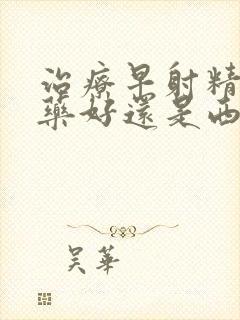 治療早射精
藥好還是西
吴華